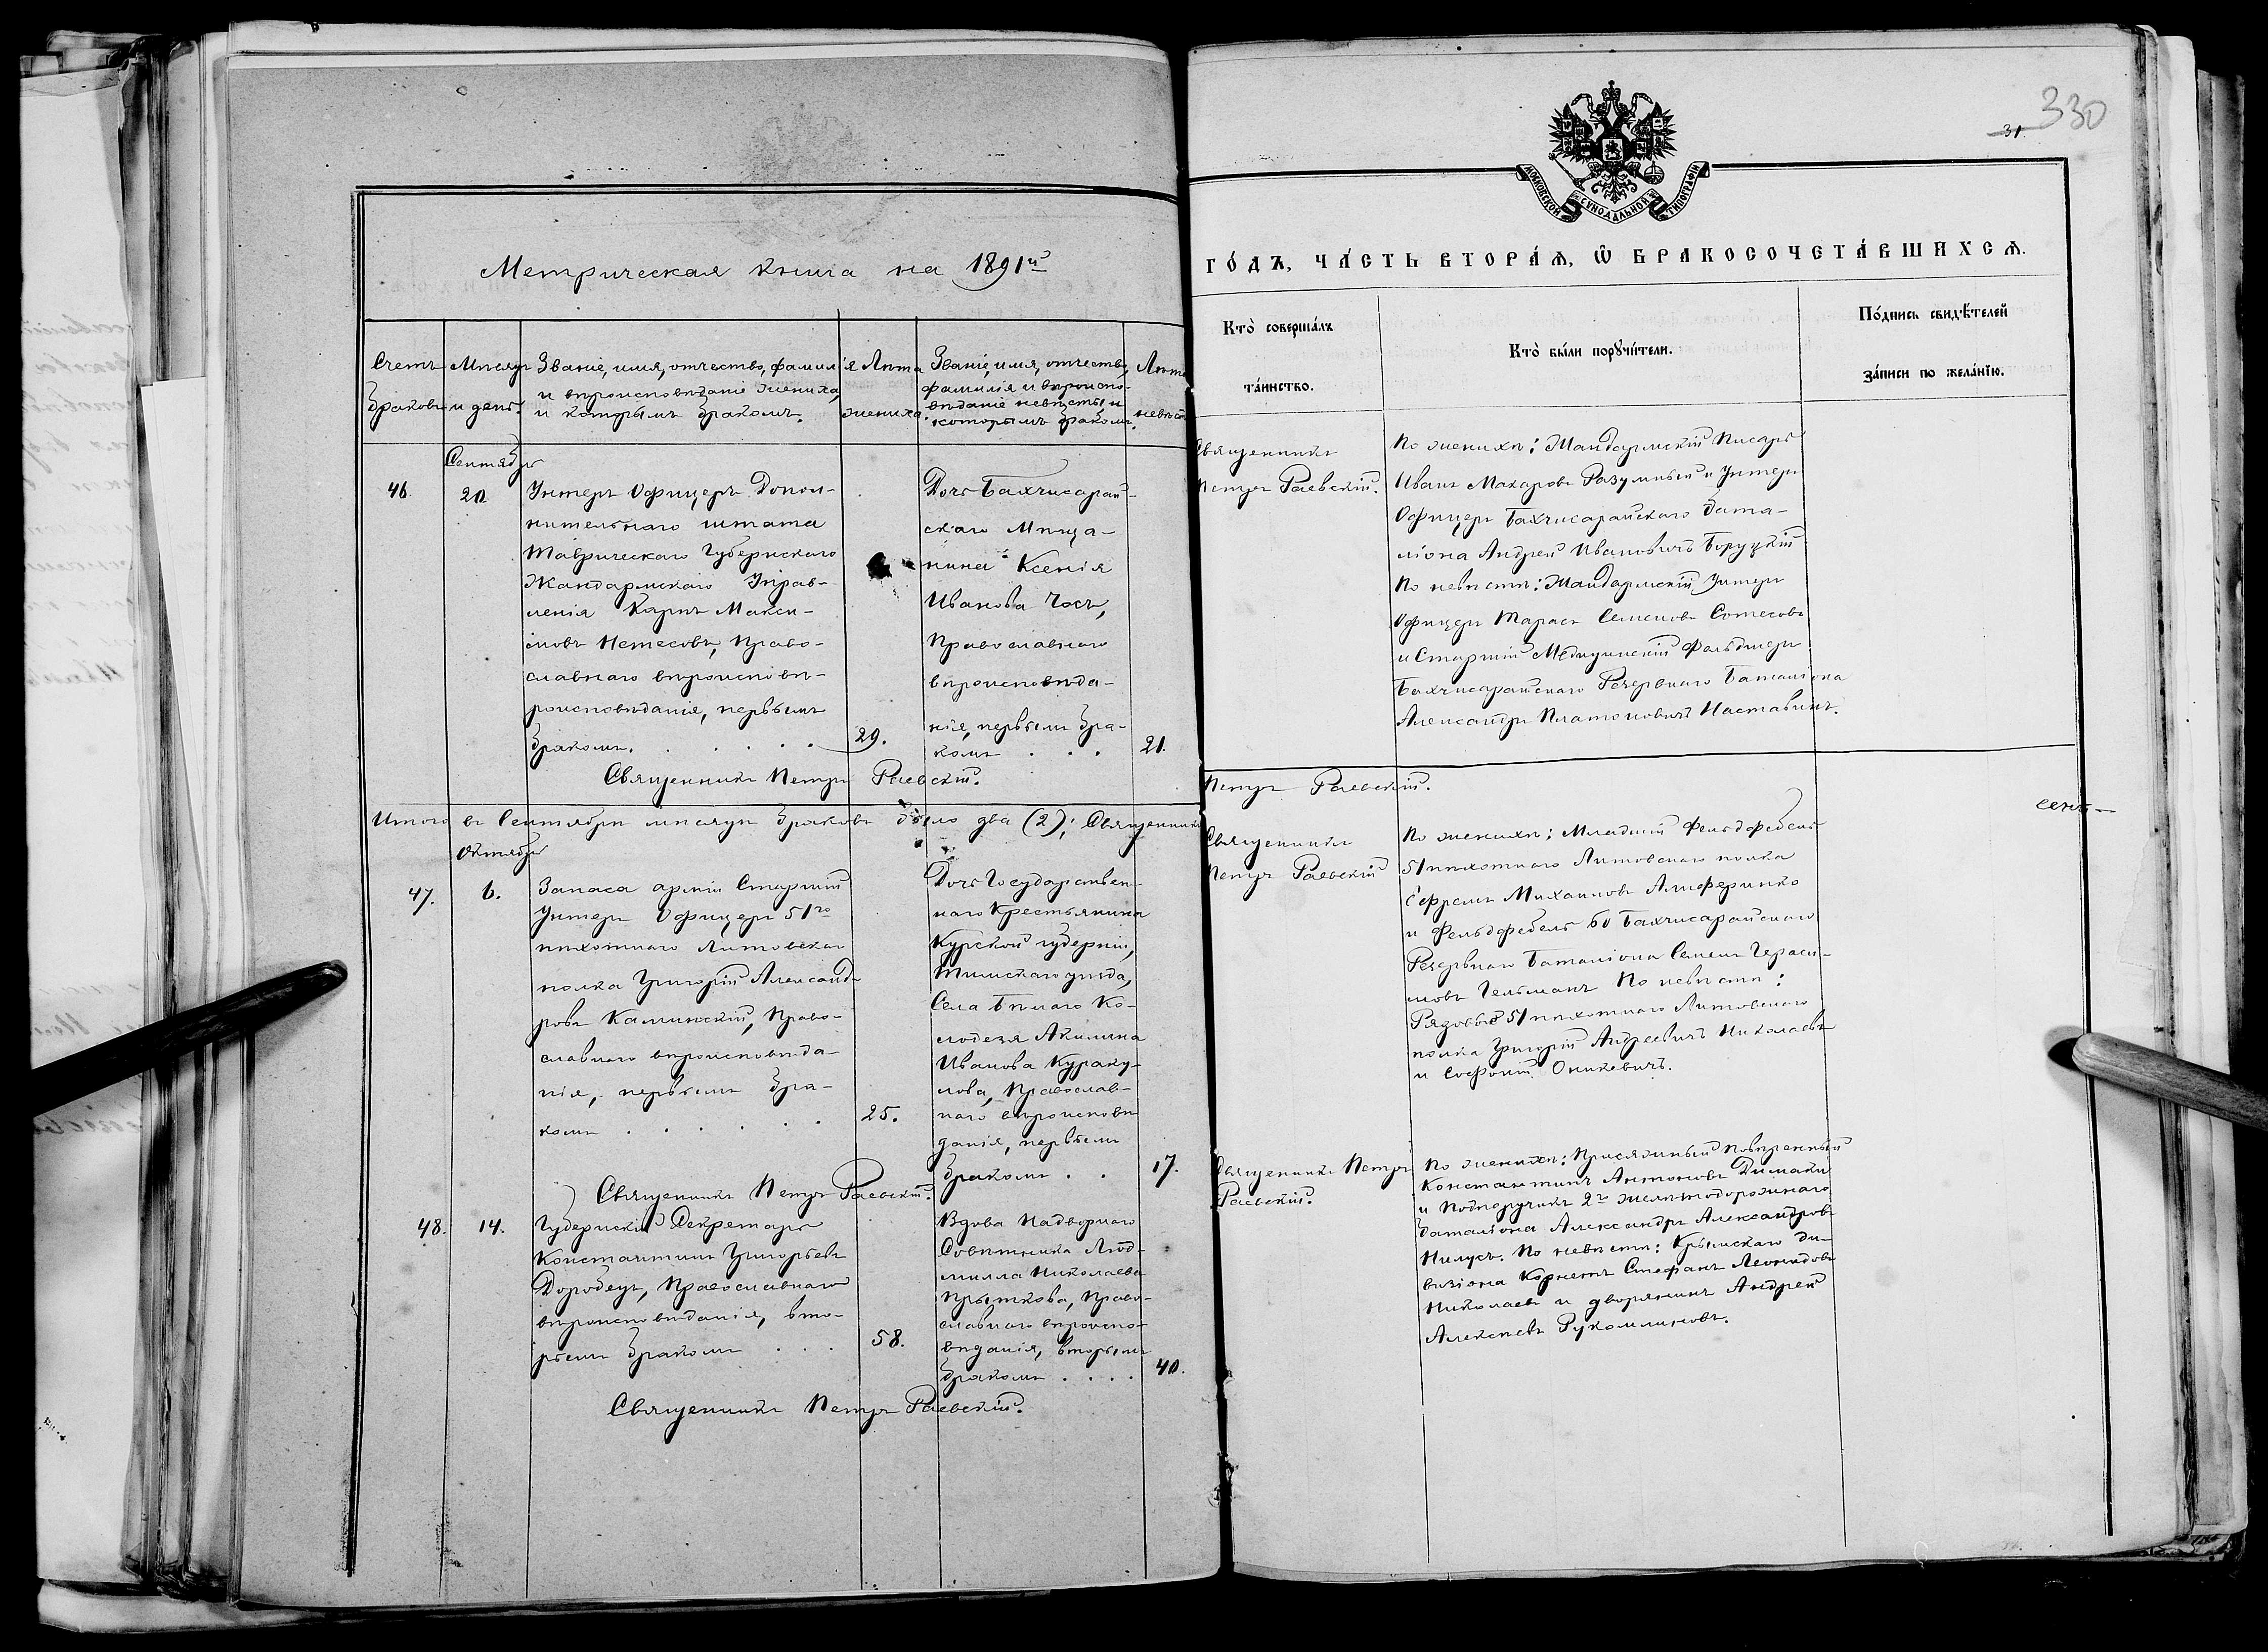 330
31.
МОСКОВСКОЙ СѴНОДАЛЬНОЙ ТИПОГРАФІИ
Метрическая книга на 1891й
ГО́ДЪ, ЧА́СТЬ ВТОРА́Ѧ, Ѿ БРАКОСОЧЕТА́ВШИХСѦ.
Счетъ
браковъ
Мѣсяцъ
и день.
Званіе, имя, отчество, фамилія
и вѣроисповѣданіе жениха,
и которымъ бракомъ.
Лѣта
жениха.
Званіе, имя, отчество,
фамилія и вѣроиспо-
вѣданіе невѣсты и
которымъ бракомъ.
Лѣта
невѣсты
Кто̀ соверша́лъ
та́инство.
Кто̀ бы́ли порꙋчи́тели.
По́дпись свидѣ́телей
за́писи по жела́нїю.
Сентябрь
46.
20.
Унтеръ Офицеръ Допол-
нительнаго штата
Таврическаго Губернскаго
Жандармскаго Управ-
ленія Карпъ Макси-
мовъ Нетесовъ, Право-
славнаго вѣроисповѣ-
роисповѣданія, первымъ
бракомъ.
29.
Дочь Бахчисарай-
скаго Мѣща-
нина Ксенія
Иванова Чосъ,
Православнаго
вѣроисповѣда-
нія, первымъ бра-
комъ
21.
Священникъ Петръ Раевскій.
Священникъ
Петръ Раевскій.
По женихѣ: Жандармскій Писарь
Иванъ Макаровъ Разумный и Унтеръ
Офицеръ Бахчисарайскаго бата-
ліона Андрей Ивановичъ Боруцкій
По невѣстѣ: Жандармскій Унтеръ
Офицеръ Тарасъ Семеновъ Сотесовъ
и Старшій Медицинскій Фельдшеръ
Бахчисарайскаго Резервнаго Баталіона
Александръ Платоновичъ Наставинъ.
Итого въ Сентябрѣ мѣсяцѣ браковъ было два (2); Священникъ
Петръ Раевскій.
сент—
Октябрь
47.
6.
Запаса арміи Старшій
Унтеръ Офицеръ 51го
пѣхотнаго Литовскаго
полка Григорій Александ-
ровъ Калинскій, Право-
славнаго вѣроисповѣда-
нія, первымъ бра-
комъ
25.
Дочь Государствен-
наго Крестьянина
Курской губерніи,
Тимскаго уѣзда,
Села Бѣлаго Ко-
лодезя Акилина
Иванова Кураку-
лова, Православ-
наго вѣроисповѣ
данія, первымъ
бракомъ
17.
Священникъ Петръ Раевскій.
Священникъ
Петръ Раевскій
По женихѣ: Младшій Фельдфебель
51 пѣхотнаго Литовскаго полка
Ефремъ Михаиловъ Алиферинко
и Фельдфебель 60 Бахчисарайскаго
Резервнаго Баталіона Семенъ Гераси-
мовъ Гельманъ По невѣстѣ:
Рядовые 51 пѣхотнаго Литовскаго
полка Григорій Андреевичъ Николаевъ
и Софоній Оникевичъ.
48.
14.
Губернскій Секретарь
Константинъ Григорьевъ
Доробецъ, Православнаго
вѣроисповѣданія, вто-
рымъ бракомъ
58.
Вдова Надворнаго
Совѣтника Люд-
милла Николаева
Прыткова, Право-
славнаго вѣроиспо-
вѣданія, вторымъ
бракомъ
40.
Священникъ Петръ Раевскій.
Священникъ Петръ
Раевскій.
По женихѣ: Присяжный повѣренный
Константинъ Антоновъ Димаки
и Подпоручикъ 2го желѣзнодорожнаго
баталіона Александръ Александровъ
Нилусъ. По невѣстѣ: Крымскаго ди-
визіона Корнетъ Стефанъ Леонидовъ
Николаевъ и дворянинъ Андрей
Алексѣевъ Рукомлиновъ.